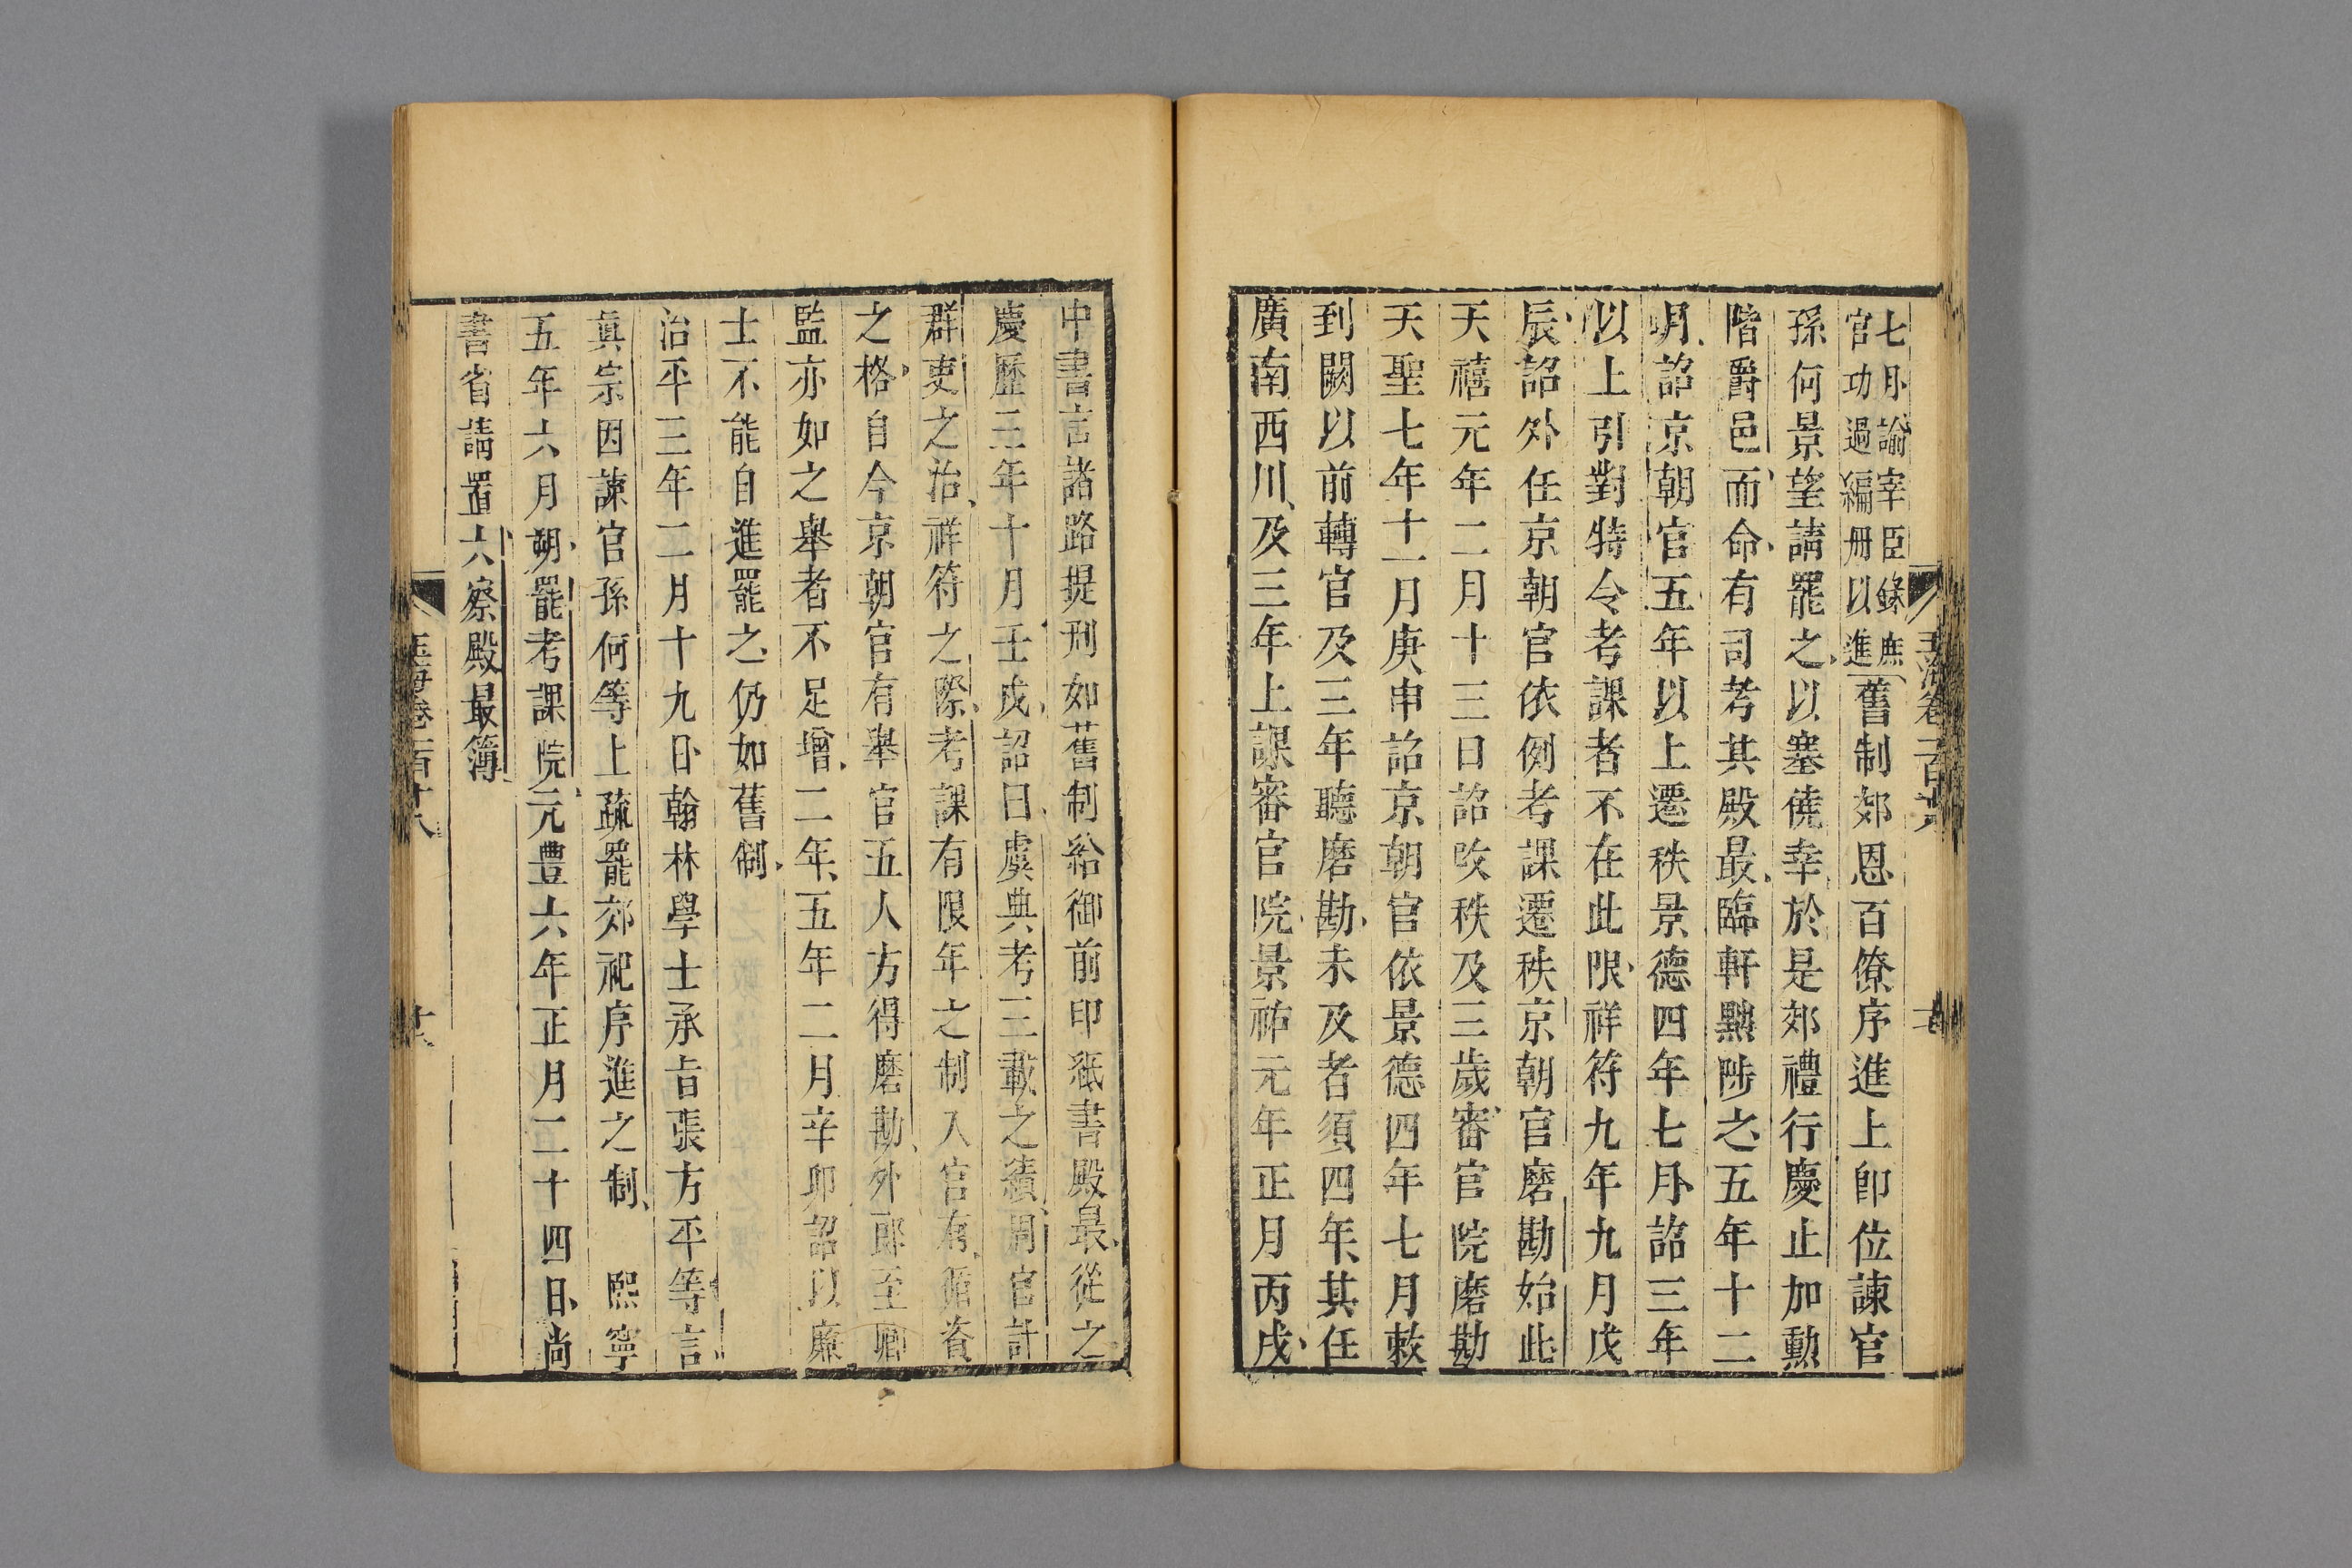 七月諭宰臣錄庶
官功過編冊以進
舊制郊恩百僚序進上卽位諫官
孫何景望請罷之以塞僥幸於是郊禮行慶止加勳
階爵邑而命有司考其殿最臨軒黜陟之五年十二
月詔京朝官五年以上遷秩景德四年七月詔三年
以上引對特令考課者不在此限祥符九年九月戊
辰詔外任京朝官依例考課遷秩京朝官磨勘始此
天禧元年二月十三日詔改秩及三歲審官院磨勘
天聖七年十一月庚申詔京朝官依景德四年七月敕
到闕以前轉官及三年聽磨勘未及者須四年其任
廣南西川及三年上課審官院景祐元年正月丙戌
中書言諸路提刑如舊制給御前印紙書殿最從之
慶歷三年十月壬戌詔曰虞典考三載之績周官計
群吏之治祥符之際考課有限年之制入官有循資
之格自今京朝官有舉官五人方得磨勘外郎至卿
監亦如之舉者不足增二年五年二月辛卯詔以廉
士不能自進罷之仍如舊制
治平三年二月十九日翰林學士承旨張方平等言
真宗因諫官孫何等上疏罷郊祀序進之制　熙寧
五年六月朔罷考課院元豐六年正月二十四日尚
書省請置六察殿最簿
玉海卷一百十八